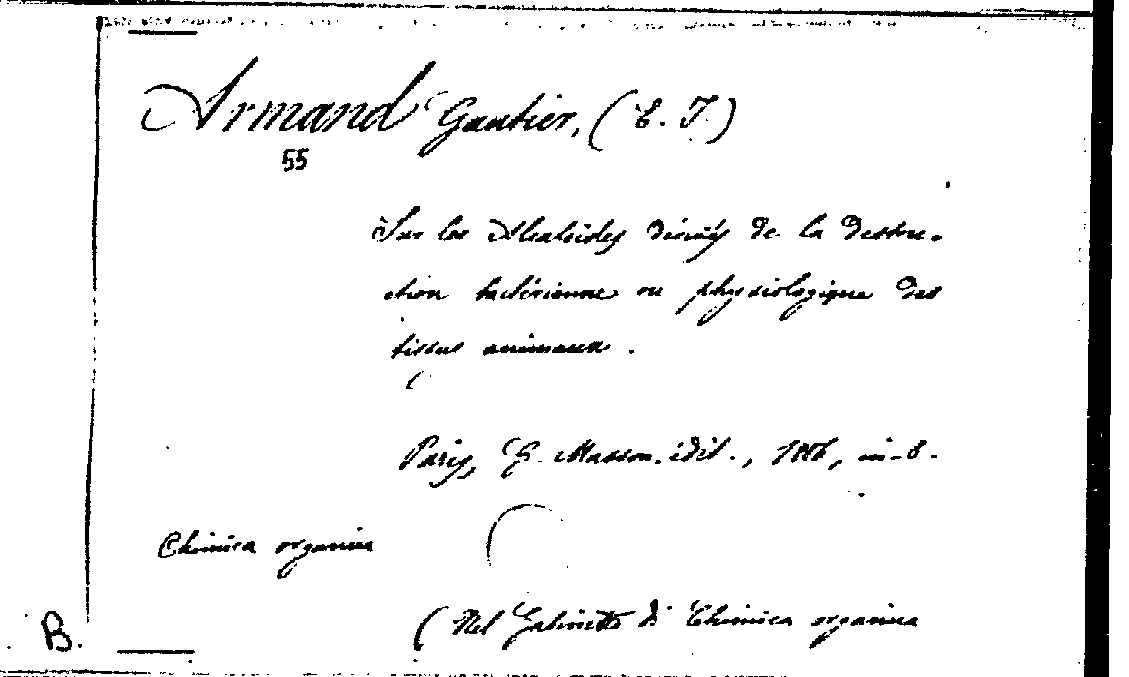 Armand Gautier, (E. J.)
55
Sur les Alcaloides dérivés de la destru-
ction bactérienne ou physiologique des
tissus animaux.
Paris, G. Masson. édit., 1886, in-8.
Chimica organica
(Nel Gabinetto di Chimica organica
B.